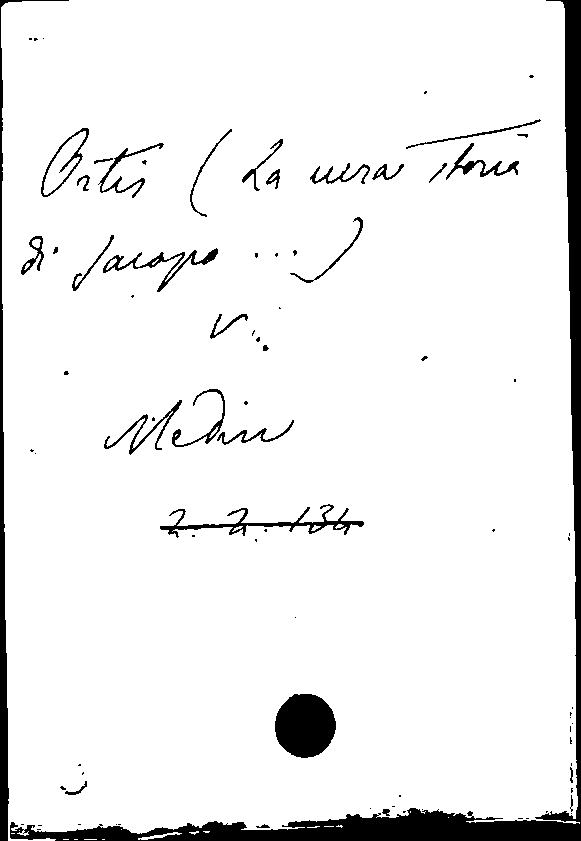 Ortis (La vera storia
di Jacopo ...)
V.
Medin
2. 2. 134